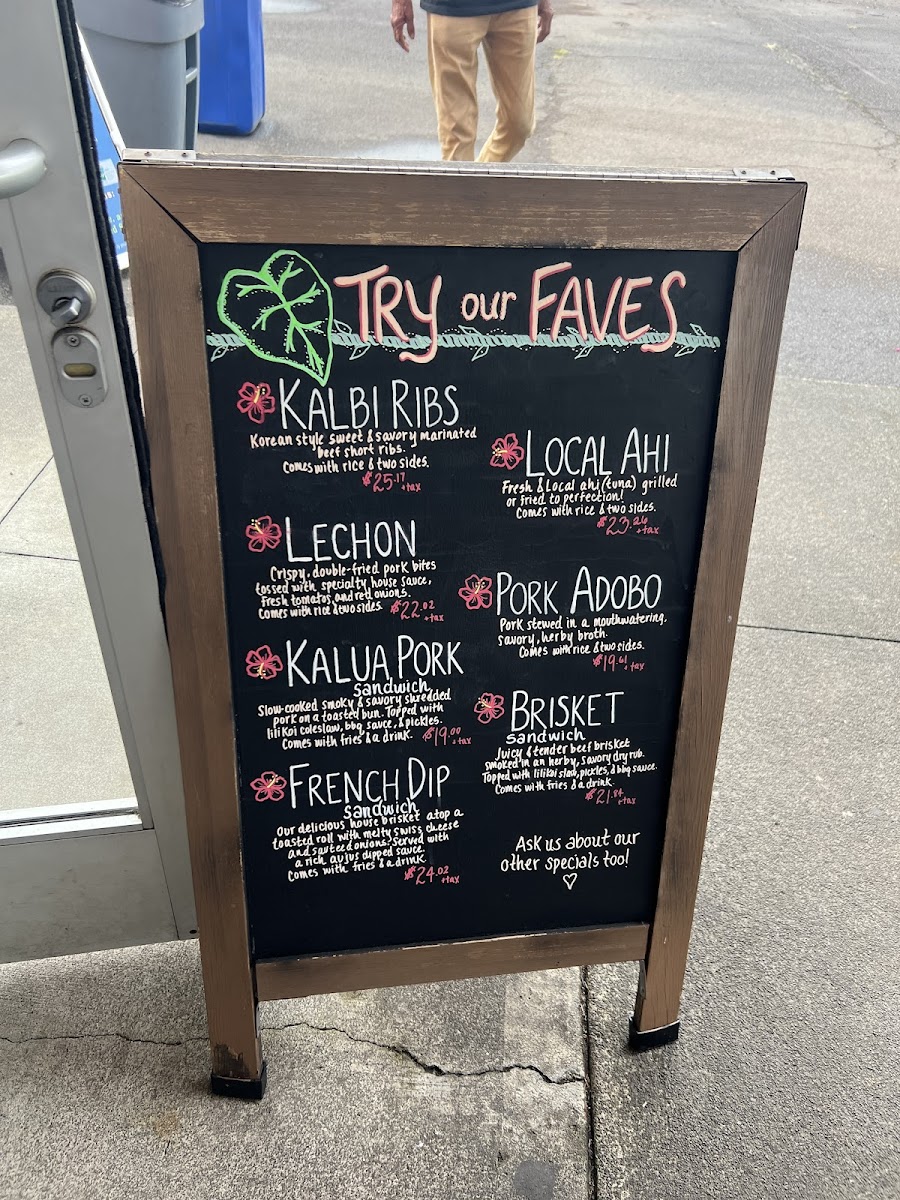 TRY our FAVES
KALBI RIBS
Korean style sweet & savory marinated
beef short ribs.
Comes with rice & two sides.
$25.17 +tax
LECHON
Crispy, double-fried pork bites
tossed with specialty house sauce,
fresh tomatos, and red onions.
Comes with rice & two sides. $22.02 +tax
KALUA PORK
sandwich
Slow-cooked smoky & savory shredded
pork on a toasted bun. Topped with
lilikoi coleslaw, bbq sauce, & pickles.
Comes with fries & a drink. $19.00 +tax
FRENCH DIP
sandwich
Our delicious house brisket atop a
toasted roll with melty swiss cheese
and sauteed onions. Served with
a rich au jus dipped sauce.
Comes with fries & a drink.
$24.02 +tax
LOCAL AHI
Fresh & Local ahi (tuna) grilled
or fried to perfection!
Comes with rice & two sides.
$23.26 +tax
PORK ADOBO
Pork stewed in a mouthwatering,
savory, herby broth.
Comes with rice & two sides.
$19.61 +tax
BRISKET
sandwich
Juicy & tender beef brisket
smoked in an herby, savory dry rub.
Topped with lilikoi slaw, pickles, & bbq sauce.
Comes with fries & a drink.
$21.84 +tax
Ask us about our
other specials too!